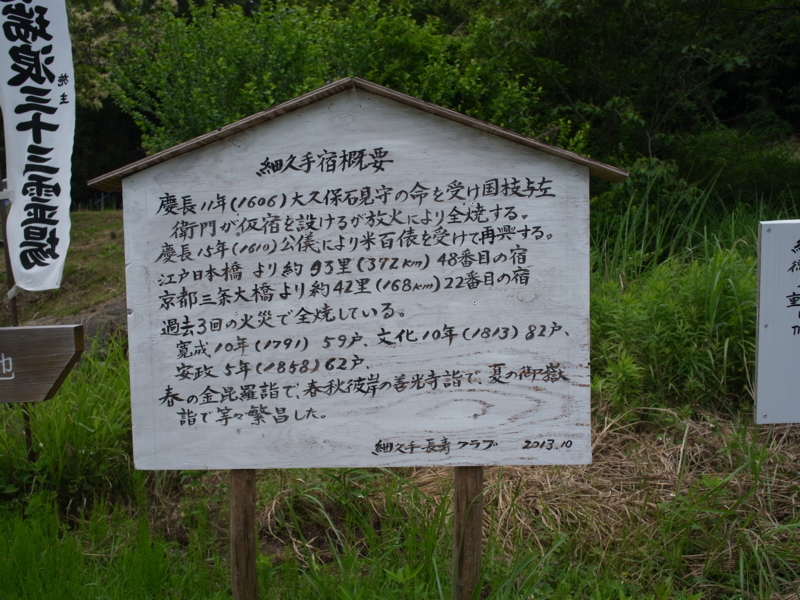 瑞浪三十三霊場
施主
細久手宿概要
慶長11年(1606)大久保石見守の命を受け国枝与左
衛門が仮宿を設けるが放火により全焼する。
慶長15年(1610)公儀により米百俵を受けて再興する。
江戸日本橋 より約 93里(372km) 48番目の宿
京都三条大橋より約42里(168km)22番目の宿
過去3回の火災で全焼している。
寛成10年(1791) 59戸、文化10年(1813) 82戸、
安政 5年(1858)62戸、
春の金毘羅詣で、春秋彼岸の善光寺詣で、夏の御嶽
詣で等々繁昌した。
細久手長寿クラブ 2013.10
地